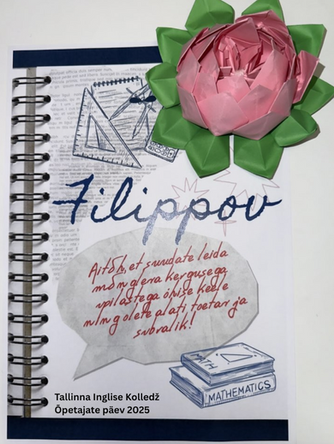 Filippov
Aitäh, et suudate leida
mõnglera kergusega
õpilastega ühise keele
ning olete alati toetav ja
sõbralik!
MATH
MATHEMATICS
Tallinna Inglise Kolledž
Õpetajate päev 2025